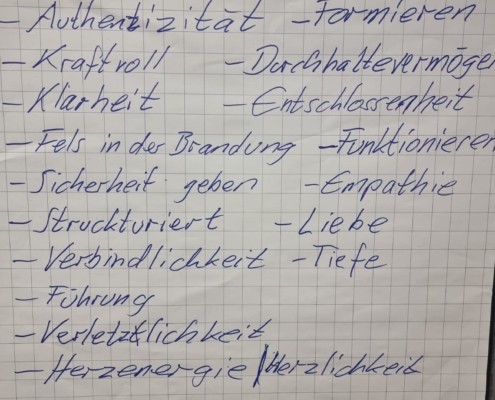 - Authentizität - Formieren
- Kraftvoll - Durchhaltevermögen
- Klarheit - Entschlossenheit
- Fels in der Brandung - Funktionieren
- Sicherheit geben - Empathie
- Struckturiert - Liebe
- Verbindlichkeit - Tiefe
- Führung
- Verletztlichkeit
- Herzenergie / Herzlichkeit